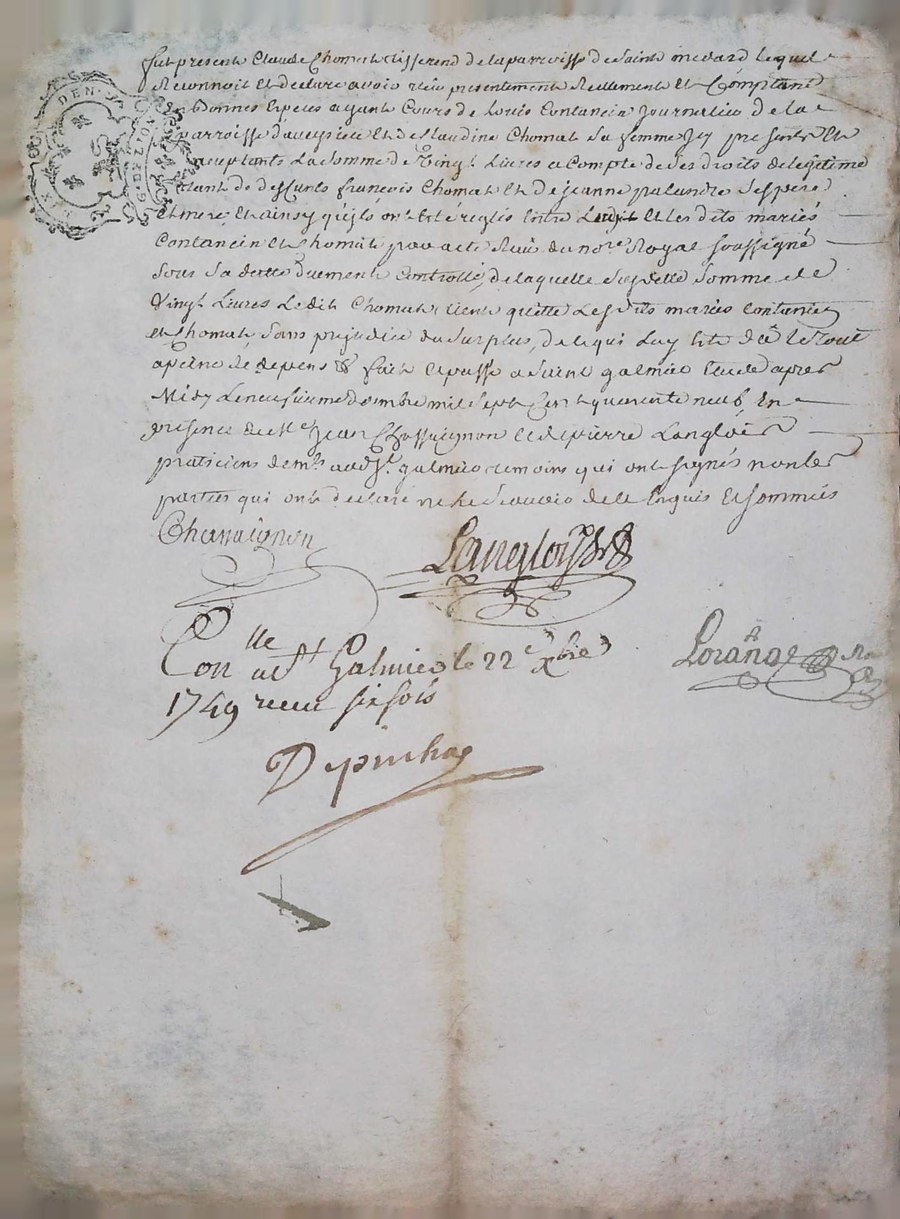 fut present Claude Chomat tisserend de la parroisse de Saint medard lequel
Reconnoit et declare avoir reçu presentement Reellement et Comptant
En bonnes Espèces ayant Cours de Louis Contancin Journalier de la
parroisse daveysieu et de Claudine Chomat Sa femme Jcy presents et
acceptants La Somme de Vingt Livres a Compte de Ses droits de legitime
de deffunts françois Chomat et de jeanne Ses pere
Et mere, et ainsy qu'ils ont Eté réglés Entre Luy et les dits mariés
Contancin et Chomat par acte Reçu du no.re Royal soussigné
Sous Sa datte duement Controllé, de laquelle Susditte Somme de
Vingt Livres Ledit Chomat tient quitte Lesdits mariés Contancin
et Chomat, Sans prejudice du Surplus, 
a peine de depens & fait et passé a Saint galmier Etude apres
Midy Le neufvieme dexmbre mil Sept Cent quarente neuf En
presence de Me Jean Chassaignon et de pierre Langlois
praticiens aud. St. galmier temoins qui ont signés non les
parties qui ont declaré ne le Scavoir de ce Enquis et Sommés
Chassaignon
Langlois
Con.lle a St Galmier le 22e Xbre
1749 recu six sols
Lorange
DEN.
G. DE LYON